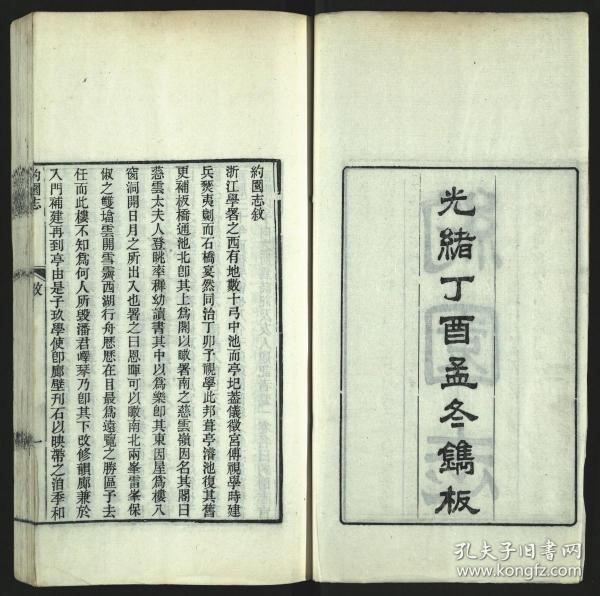 光緒丁酉孟冬鐫板
約園志敘
浙江學署之西有地數十弓中池而亭圯蓋儀徵宮傅視學時建
兵燹夷劚而石橋宴然同治丁卯予視學此邦葺亭濬池復其舊
更補板橋通池北卽其上爲閣以瞰署南之慈雲嶺因名其閣曰
慈雲太夫人登眺率穉幼讀書其中以爲樂卽其東因屋爲樓八
窗洞開日月之所出入也署之曰恩暉可以瞰南北兩峯雷峯保
俶之雙塔雲開雪霽西湖行舟歷歷在目最爲遠覽之勝區予去
任而此樓不知爲何人所毀潘君嶧琴乃卽其下改修韻廊兼於
入門補建再到亭由是子玖學使卽廊壁刊石以映帶之洎季和
約園志
敘
一
孔夫子旧书网
www.kongfz.com